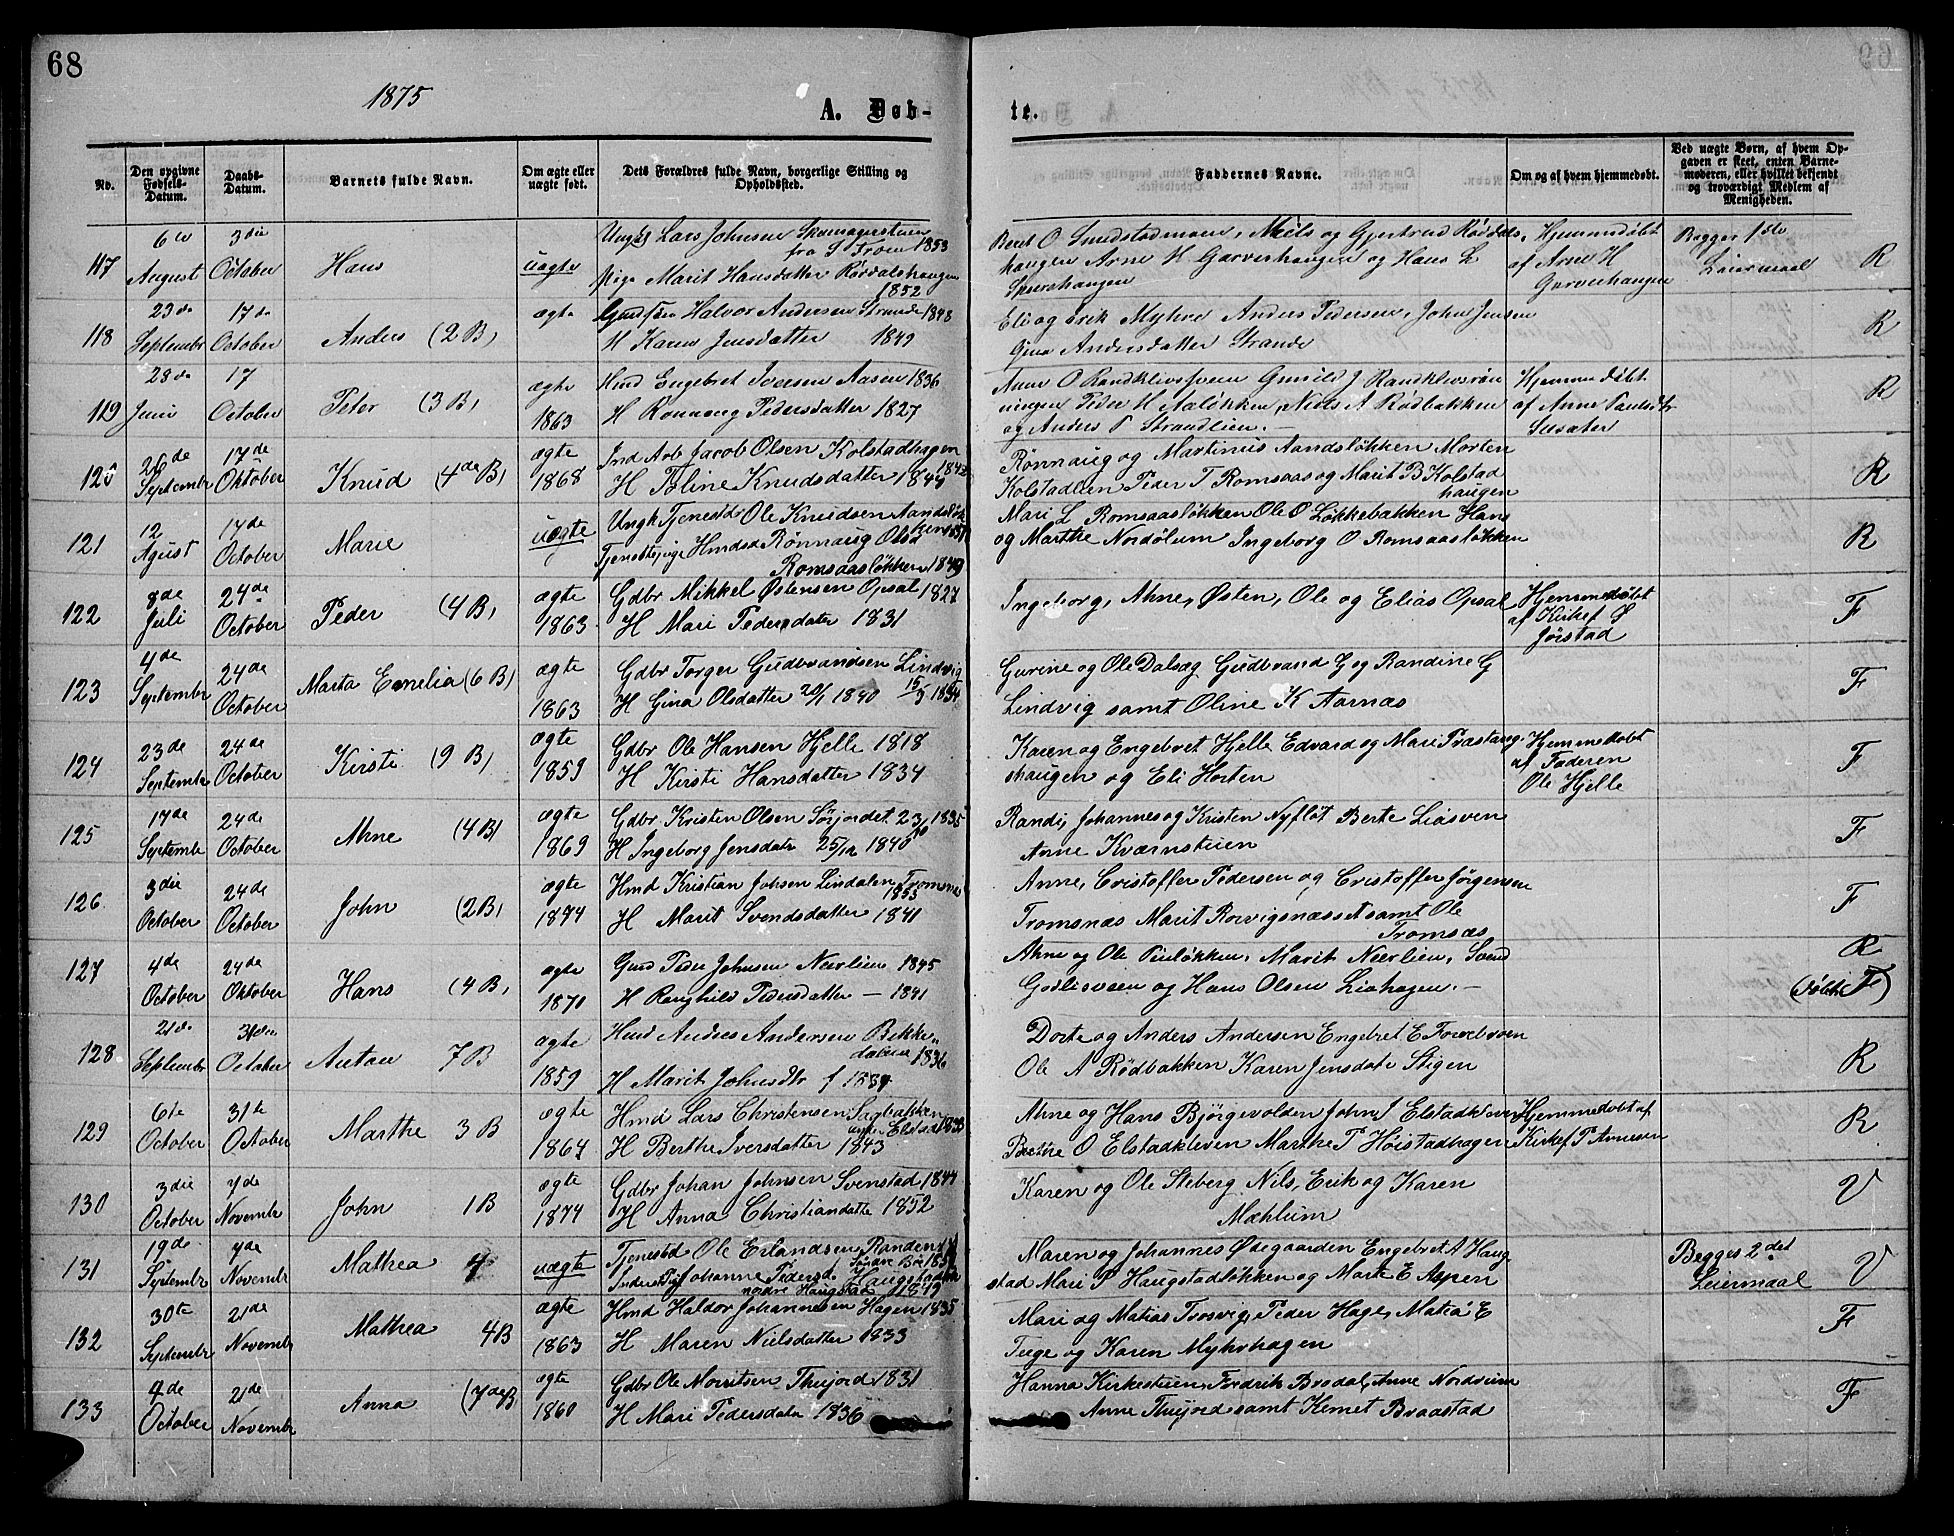 68
1875
A. Døb-
te.
Nr.
Den opgivne Fødsels-Datum.
Daabs-Datum.
Barnets fulde Navn.
Om ægte eller uægte født.
Dets Forældres fulde Navn, borgerlige Stilling og Opholdssted.
Faddernes Navne.
Om og af hvem hjemmedøbt.
Ved uægte Børn, af hvem Opgaven er skeet, enten Barnemoderen, eller hvilket bekjendt og troværdigt Medlem af Menigheden.
117 6te August 3die October Hans uægte
Ungk Lars Johnsen 1853
Pige Marit Hansdatter Rørdalshaugen 1852
Hjemmedøbt af Arne H Garverhaugen
Begges 1ste Leiermaal
R
118 23de Septembr 17de October Anders (2B) ægte
Halvor Andersen Strande 1848
H Karen Jensdatter 1849
Eli og Erik Myhre Anders Pedersen, John Jensen
Gina Andersdatter Strande
R
119 28de Juni 17 October Peter (3B) ægte 1863
Hmd Engebret Iversen Aasen 1836
H Rønnaug Pedersdatter 1827
ningen Peder H Aaløkken, Niels A Rødbakken
og Anders P Strandlien.
Hjemmedøbt af Anne Paulsdtr
R
120 26de Septembr 17de Oktober Knud (4de B) ægte 1868
Ind Arb Jacob Olsen Kolstadhagen
H Oline Knudsdatter 1844
Rønnaug og Martinus Aandsløkken Morten
Kolstadlien Peder T Romsaas og Marit B Kolstad
haugen
R
121 12 Agust 17de October Marie uægte
Ungk Tjenestdr Ole Knudsen
Tjenestepige Hmdsd Rønnaug Olsd
Romsaasløkken 1849
Mari L Romsaasløkken Ole O Løkkebakken Hans
og Marthe Nordølum Ingeborg O Romsaasløkken
R
122 8de Juli 24de October Peder (4B) ægte 1863
Gdbr Mikkel Østensen Opsal 1827
H Mari Pedersdater 1831
Ingeborg, Ahne, Østen, Ole og Elias Opsal
Hjemmedøbt af Kirkes S Jørstad
F
123 4de Septembr 24de October Marta Emelia (6B) ægte 1863
Gdbr Torger Gudbrandsen Lindvig
H Gina Olsdatter 20/1 1840 15/5 1834
Gurine og Ole Dalsæg Gudbrand G og Randine G
Lindvig samt Oline K Aarnæs
F
124 23de Septembr 24de October Kirsti (9B) ægte 1859
Gdbr Ole Hansen Hjelle 1818
H Kirsti Hansdatter 1834
Karen og Engebret Hjelle Edvard og Mari Præstang
shaugen og Eli Horten
Hjemmedøbt af Faderen Ole Hjelle
F
125 17de Septembr 24de October Ahne (4B) ægte 1869
Gdbr Kristen Olsen Sørjordet 23/10 1835
H Ingeborg Jensdatr 25/12 1840
Randi, Johannes og Kristen Nyfløt Berte Liasven
Anne Kværnstuen
F
126 3die October 24de October John (2B) ægte 1874
Hmd Kristian Johsen Lindalen Tromsnæs 1853
H Marit Svendsdatter 1841
Anne, Cristoffer Pedersen og Cristoffer Jørgensen
Tromsnæs Marit Rørvigsnæsset samt Ole
Tromsæs
F
127 4de October 24de Oktober Hans (4B) ægte 1870
Gmd Peder Johnsen Nærlien 1845
H Ranghild Pedersdatter – 1841
Ahne og Ole Piuløkken, Marit Nærlien, Svend
og Hans Olsen Liahagen.
R
(døbt F)
128 21de September 31de October Antou 7B ægte 1859
Hmd Andres Andersen Bekkedalen 1836
H Marit Johnsdtr f 1837
Dorte og Anders Andersen Engebret E
Ole A Rødbakken Karen Jensdatr Stigen
R
129 6te October 31te October Marthe 3B ægte 1867
Hmd Lars Christensen Sagbakken
und. Elstad 1833
H Berthe Iversdatter 1843
Ahne og Hans Bjørgevolden John J Elstadkleven
Berthe O Elstadkleven Marthe P Høistadhagen
Hjemmedøbt af Kirkes P Arnesen
R
130 3die October 7de Novembr John 1B ægte 1874
Gdbr Johan Johnsen Svenstad 1844
H Anna Christiandatter 1852
Karen og Ole Steberg Nils, Erik og Karen
Mæhlum
V
131 19de Septembr 7de Novembr Mathea 4 uægte
Tjenestd Ole Erlandsen Randen
Søndre Bø 1851
Inderst Pig Johanne Pedersd. Haugstadløk
nordre Haugstad 1849
Maren og Johannes Ødegaarden Engebret A Haug-
stad Mari P Haugstadløkken og Marte E Aspen
Begges 2det Leiermaal
V
132 30te Septembr 21de Novembr Mathea 4B ægte 1863
Hmd Haldor Johannesen Hagen 1835
H Maren Nielsdatter 1833
Mari og Matias Trosvig, Peder Hage, Matia E
Tuge og Karen Myhrhagen
F
133 4de October 21de Novembr Anna (7de B) ægte 1860
Gdbr Ole Morritsen Thujord 1831
H Mari Pedersdatr 1836
Hanna Kirkestuen, Fredrik Brodal, Anne Nordrum
Anne Thujord samt Kemet Braastad
F